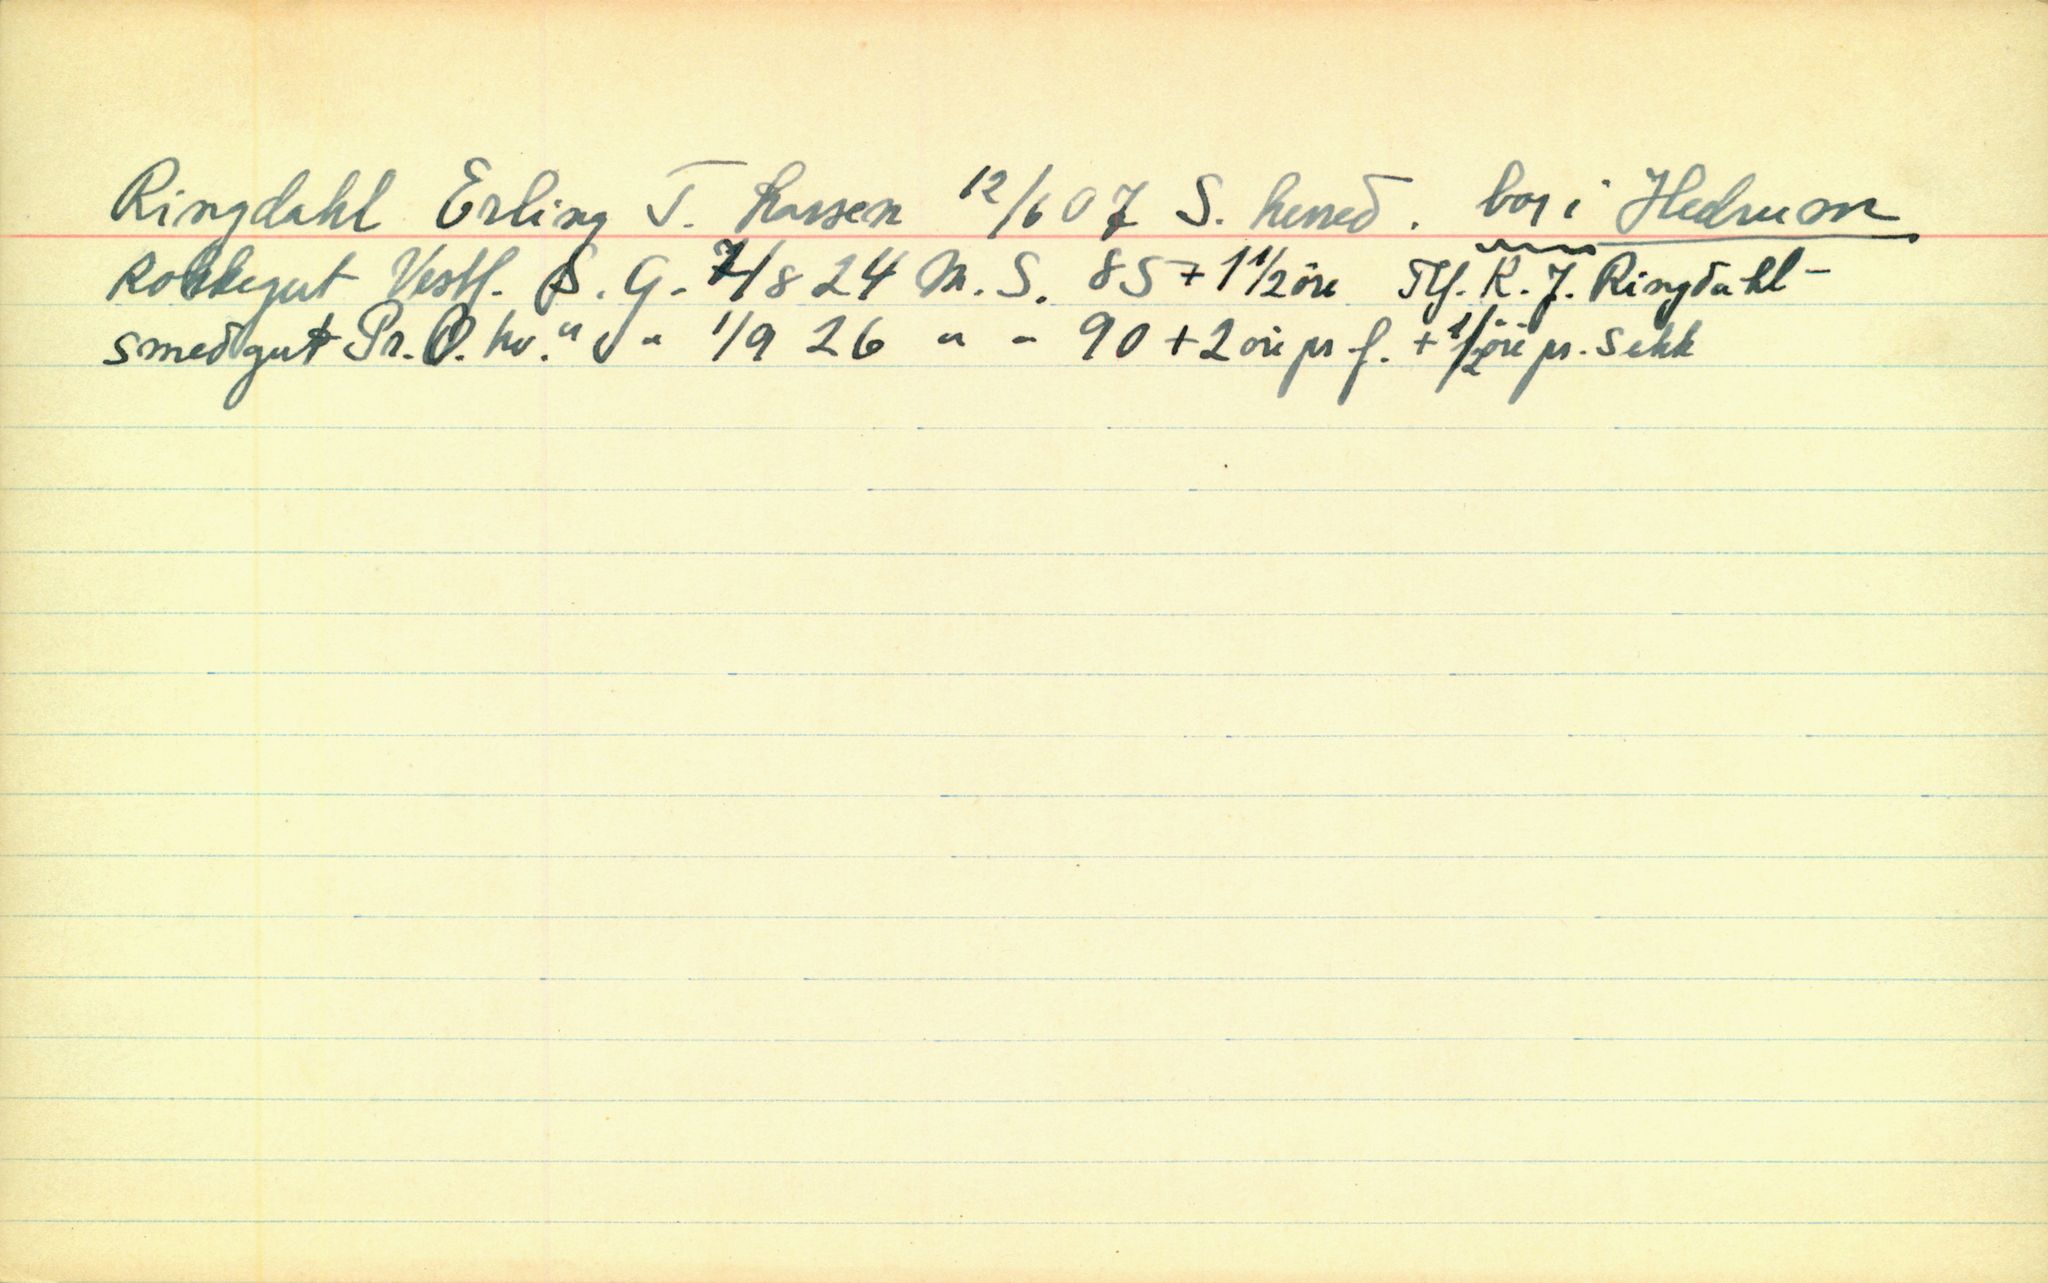 Ringdahl Erling T. Larsen 12/6 07 S. herred. bor i Hedrum
Kokkegut Vestf. S. G. 7/8 24 M. S. 85 + 1 1/2 öre Tlf. K. J. Ringdahl -
smedgut Pr. O. hv. " " 1/9 26 " - 90 + 2 öre pr f. + 1/2 öre pr. Sekk